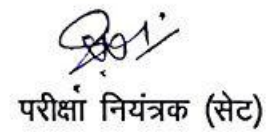 परीक्षा नियंत्रक (सेट)